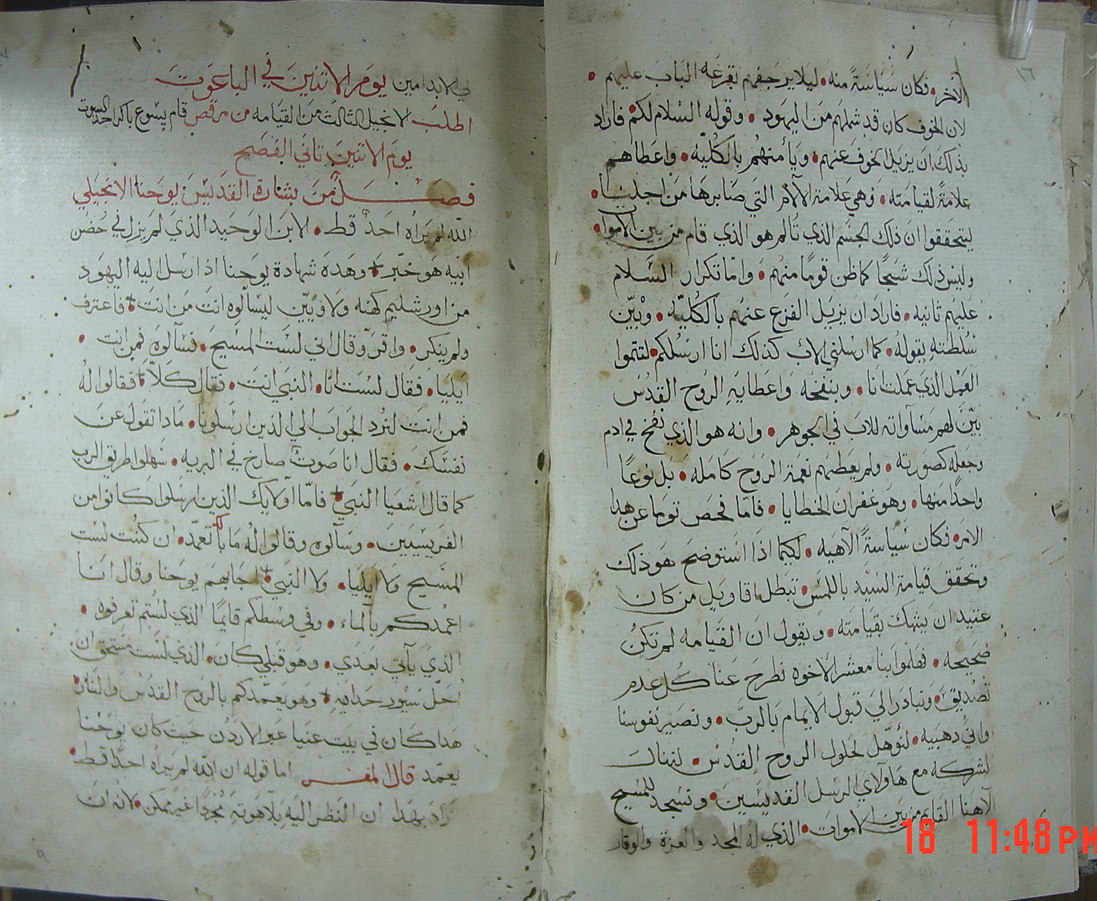 الآخر • فكان سياسة منه • ليلا يرجفهم بقرعه الباب عليهم •
لان الخوف كان قد شملهم من اليهود • وقوله السلام لكم فاراد
بذلك ان يزيل الخوف عنهم • ويأمنهم بالكليّه • واعطاهم
علامة لقيامته • وهي علامة الآلام التي صابرها من اجلنا •
ليتحققوا ان ذلك الجسم الذي تالم هو الذي قام من بين الاموات
وليس ذلك شبحًا كما ظن قومًا منهم • وامّا تكرار السلام
عليهم ثانيه • فاراد ان يزيل الفزع عنهم بالكليّه • وبيّن
سُلطته بقوله • كما ارسلني الاب كذلك انا ارسلكم • لتتموا
العمل الذي عملت انا • وبنفخه واعطايه الروح القدس
بيّن لهم مساواته للاب في الجوهر • وانه هو الذي نفخ في ادم
وجعله كصورته • ولم يعطهم نعمة الروح كامله • بل نوعًا
واحدًا منها • وهو غفران الخطايا • فامّا فحص توما عن هذا
الامر • فكان سياسة الآهيه • لكيما اذا استوضح هو ذلك
وتحقق قيامة السيد باللمس • تبطل اقاويل من كان
عتيد ان يتهك بقيامته • ويقول ان القيامه لم تكن
صحيحه • فهلموا بنا معشر الاخوه نطرح عنا كل عدم
تصديق • ونبادر الي قبول الايمام بالرب • ونصير نفوسنا
اواني ذهبيه • لنؤهّل لحلول الروح القدس • لتنال
الشركه مع هاولاي الرسل القديسين • ونسجد للمسيح
الآهنا القايم من بين الاموات • الذي له المجد والعزة والوقار
الي الابد امين يوم الاثنين في الباعوت
اطلب الانجيل الثالث من القيامه من مرقص قام يسوع باكر احد السبوت
يوم الاثنين ثاني الفصح
فصل من بشارة القديس يوحنا الانجيلي
الله لم يراه احدٌ قط • الابن الوحيد الذي لم يزل في حضن
ابيه هو خبّر + وهذه شهادة يوحنا اذ ارسل اليه اليهود
من اورشليم كهنه ولاويّين ليسألوه انت من انت + فاعترف
ولم ينكر • واقرّ وقال اني لست المسيح • فسآلوه فمن انت •
ايليا • فقال لست انا • النبي انت • فقال كلّا + فقالوا له
فمن انت لنرد الجواب الي الذين ارسلونا • ماذا تقول عن
نفسك • فقال انا صوت صارخ في البريه • سهلوا طريق الرب
كما قال اشعيا النبي + فامّا اولايك الذين ارسلوا كانوا من
الفريسيين • وسآلوه وقالوا له ما بالك تعمّد • ان كنت لست
المسيح ولا ايليا • ولا النبي + اجابهم يوحنا وقال انا
اعمدكم بالماء • وفي وسطكم قايمًا الذي لستم تعرفوه •
الذي ياتي بعدي • وهو قبلي كان • الذي لست مستحق ان
احلّ سيور حذايه + وهو يعمّدكم بالروح القدس والنار •
هذا كان في بيت عنيا عبر الاردن حيث كان يوحنا
يعمّد قال المفسر اما قوله ان الله لم يراه احدًا قط •
راد بهذا ان النظر اليه بلاهوته مجردًا غير ممكن • لانه ان
18 11:48PM